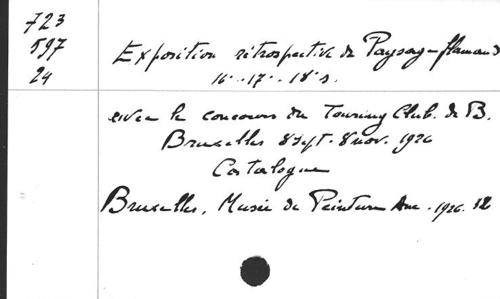 723
597
24
Exposition rétrospective du Paysage flamand
16e - 17e - 18e s.
avec le concours du Touring Club. de B.
Bruxelles 8 sept. - 8 nov. 1926
Catalogue
Bruxelles, Musée de Peinture Anc. 1926. 12